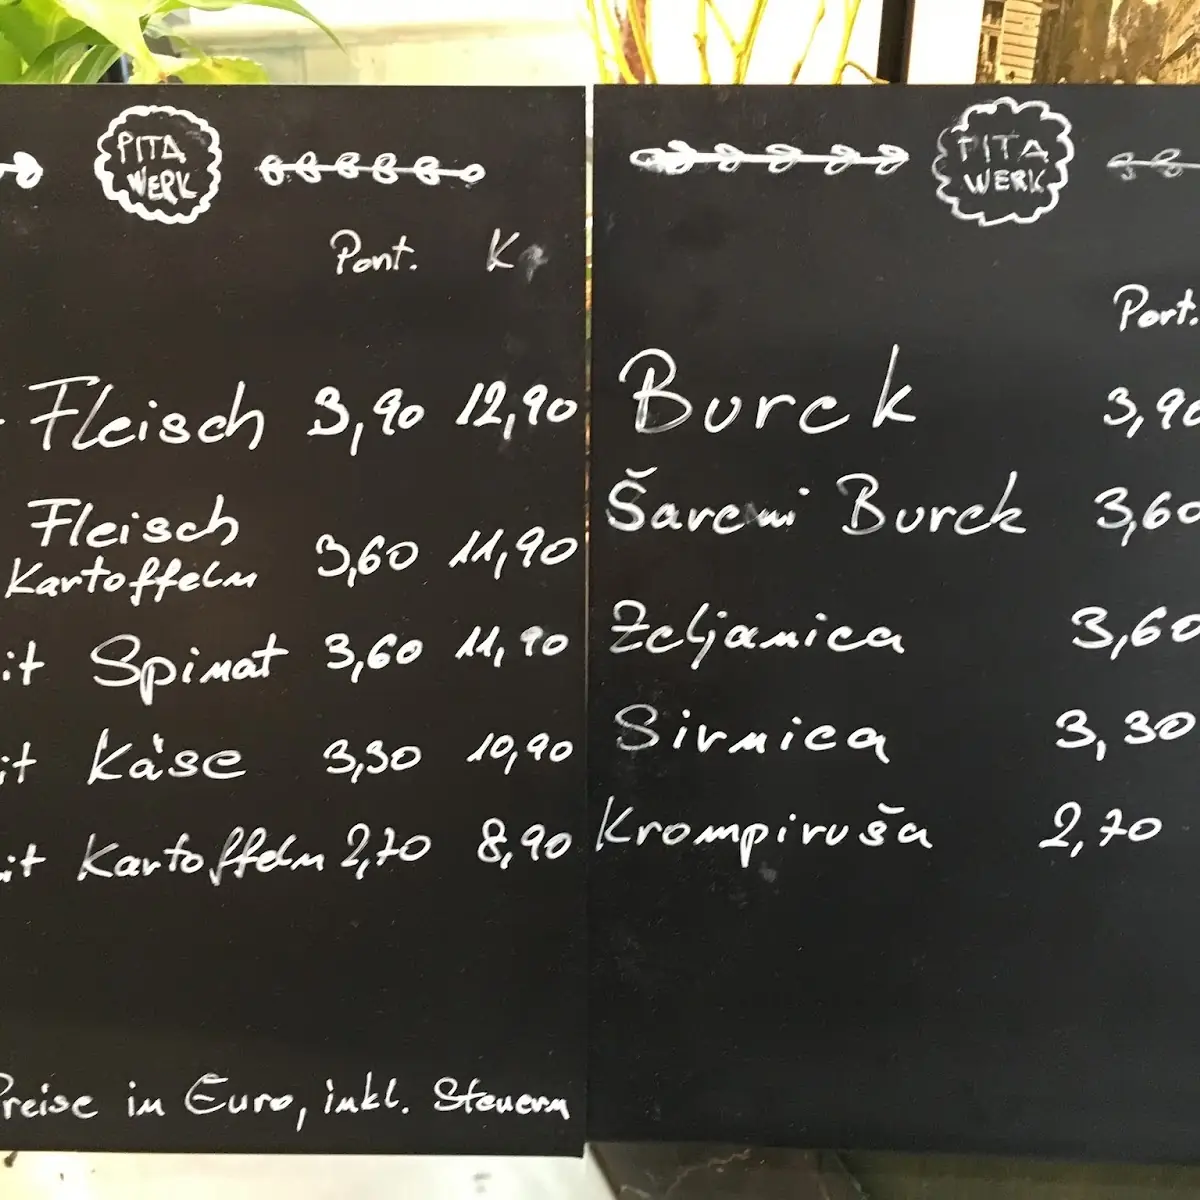 PITA
WERK
Port. K
Fleisch 3,90 12,90
Fleisch
Kartoffeln 3,60 11,90
it Spinat 3,60 11,90
it Käse 3,30 10,90
it Kartoffeln 2,70 8,90
Preise in Euro, inkl. Steuern
PITA
WERK
Port.
Burek 3,90
Šareni Burek 3,60
Zeljanica 3,60
Sirnica 3,30
Krompiruša 2,70